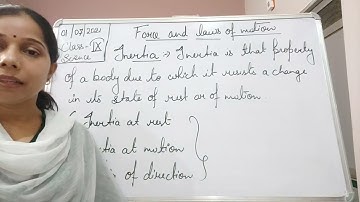 01/07/2021
Class-IX
Science
Force and laws of motion
Inertia → Inertia is that property
of a body due to which it resists a change
in its state of rest or of motion
Inertia at rest
at motion
of direction